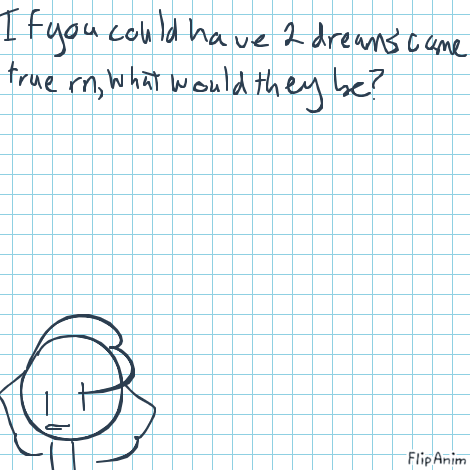 If you could have 2 dreams come
true rn, what would they be?
FlipAnim